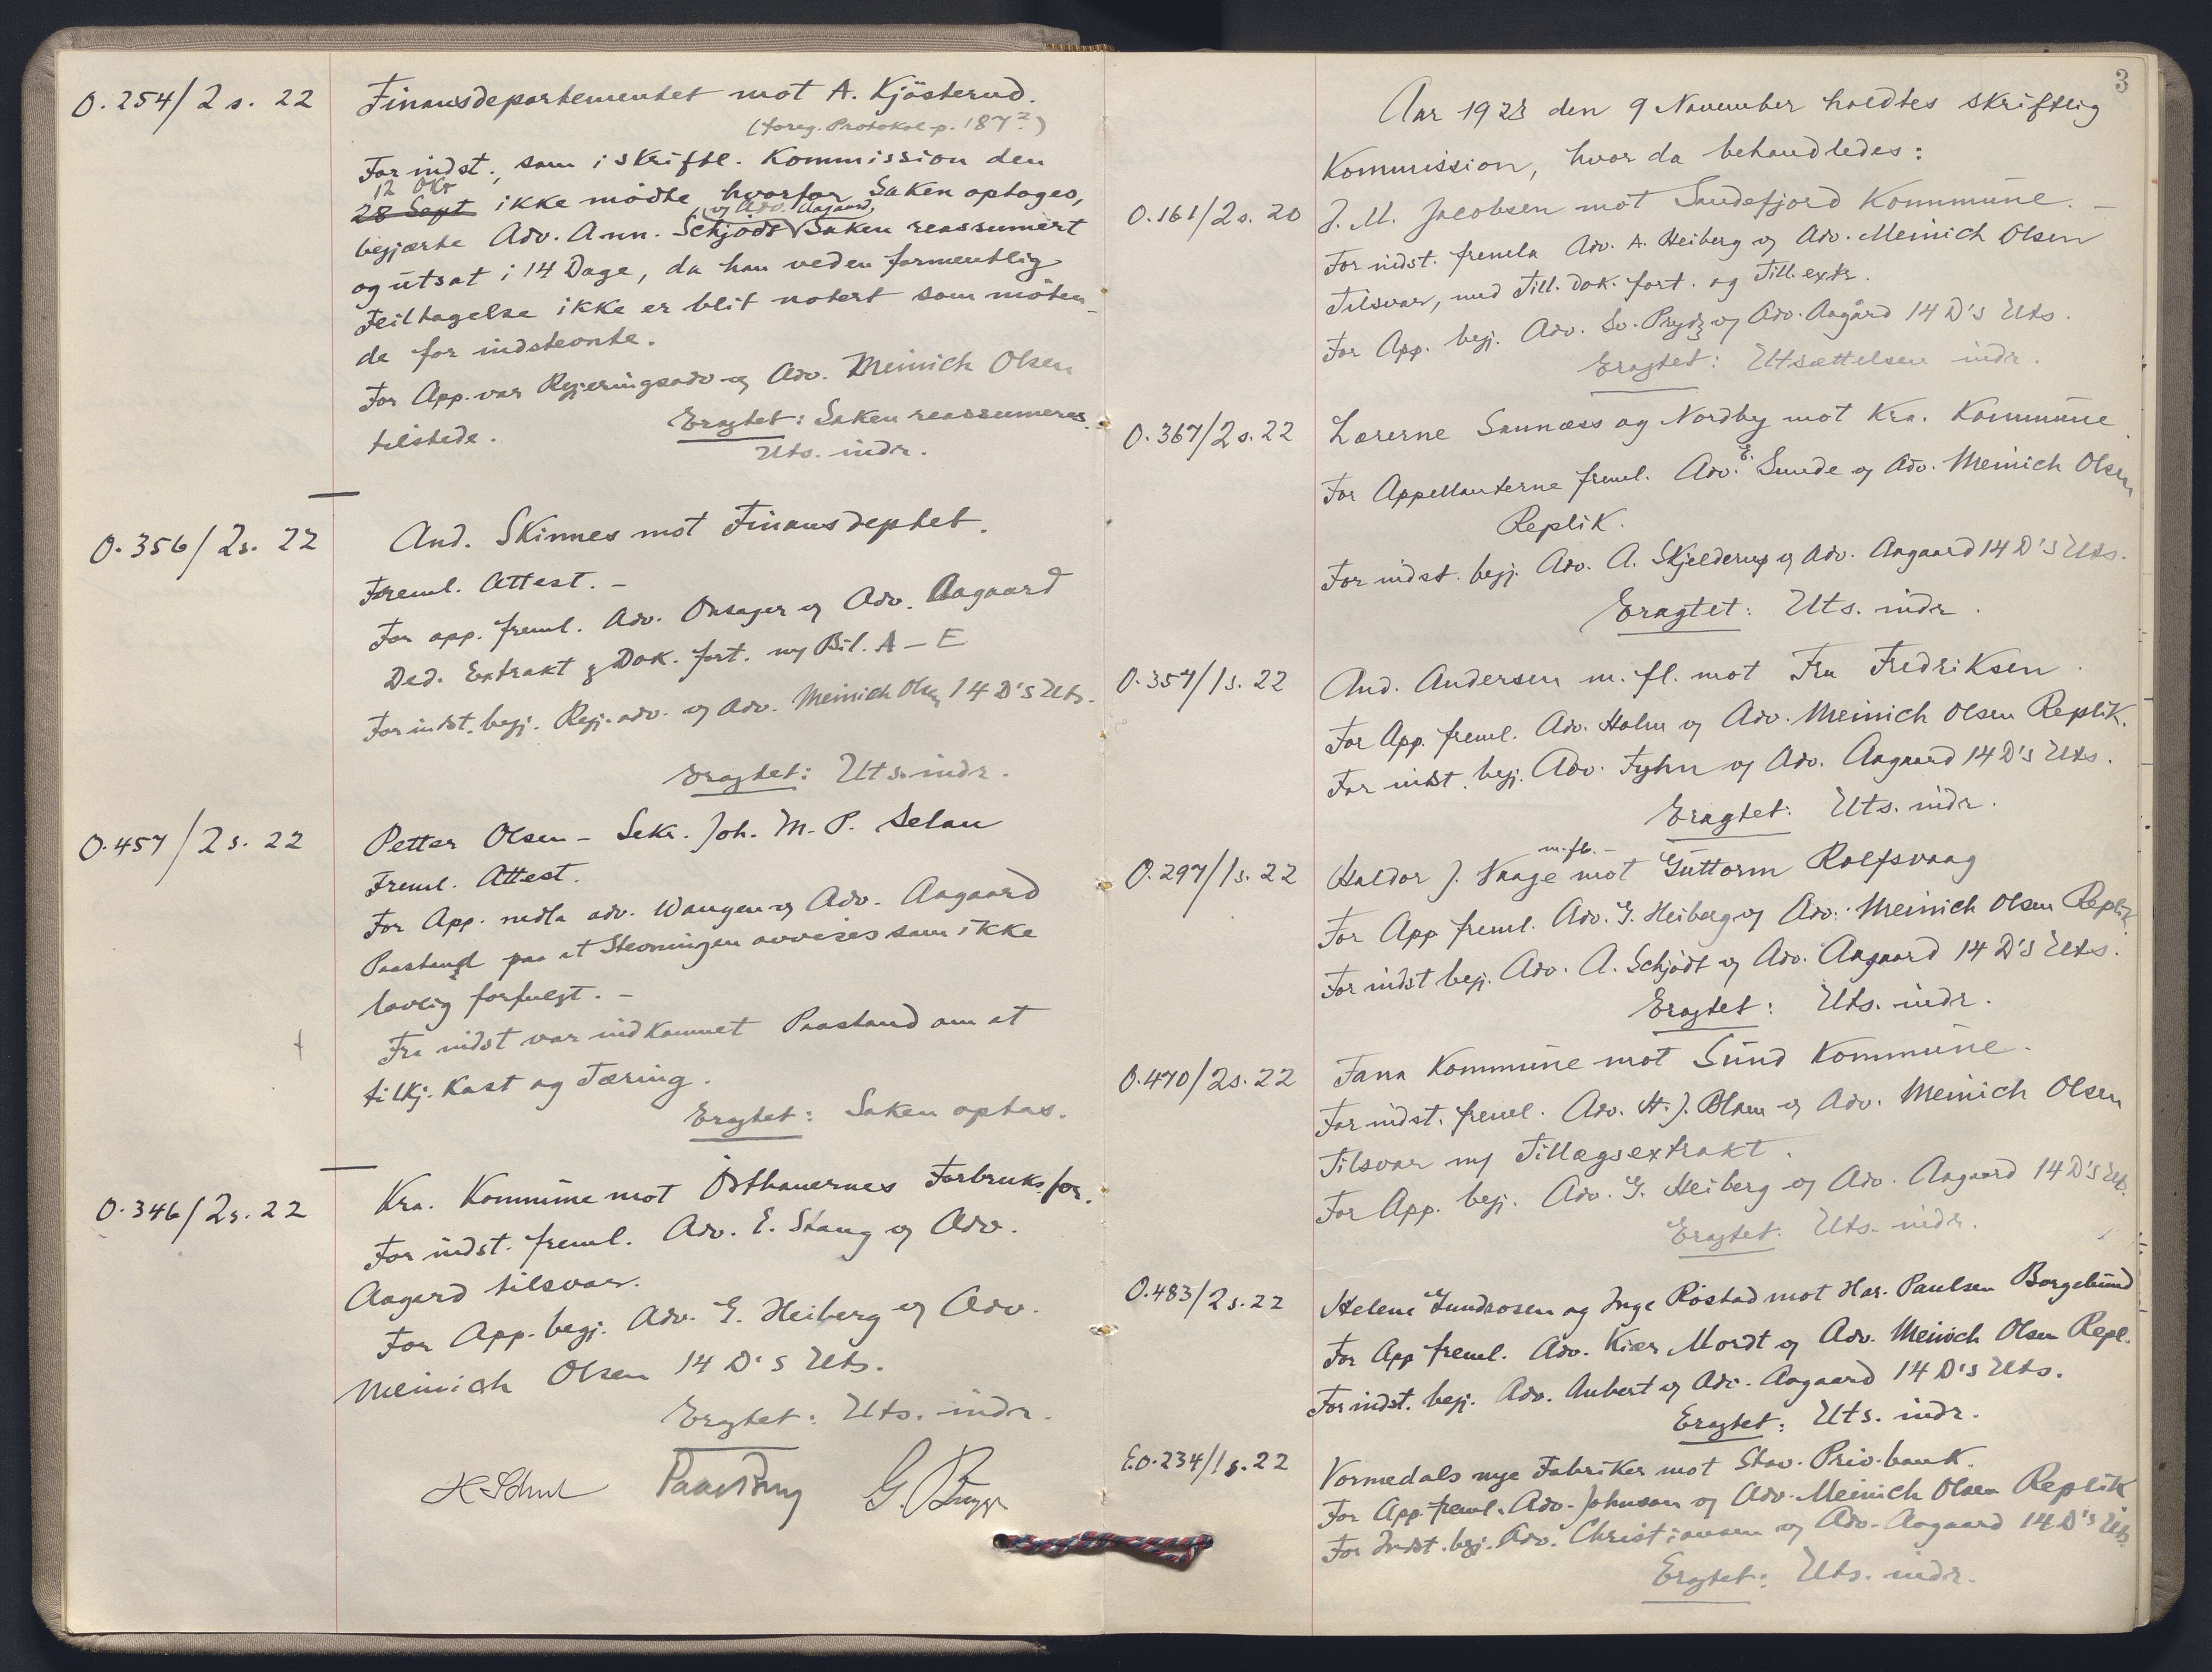 O. 254/2 s. 22
Finansdepartementet mot A. Kjösterud.
(foreg. Protokol p. 187²)
For indst., som i skriftl. Kommission den
12 Okt
28 Sept ikke mödte hvorfor Saken optoges,
og Adv. Aagaard
begjærte Adv. Ann. Schjödt Saken reassumert
og utsat i 14 Dage, da han ved en formentlig
Feiltagelse ikke er blit notert som möten-
de for indstevnte.
For App. var Regjeringsadv og Adv. Meinich Olsen
tilstede.
Eragtet: Saken reassumeres.
Uts. indr.
O. 356/2s. 22
And. Skinnes mot Finansdeptet.
Freml. Attest. -
For app. freml. Adv. Onsager og Adv. Aagaard
Ded. Extrakt & Dok. fort. m/ Bil. A - E
For indst. begj. Regj.adv. og Adv. Meinich Olsen 14 D's Uts.
Eragtet: Uts. indr.
O. 457/2 s. 22
Petter Olsen - Sekr. Joh. M. P. Selau
Freml. Attest.
For App. nedla adv. Wangen og Adv. Aagaard
Paastand paa at Stevningen avvises som ikke
lovlig forfulgt. -
Fra indst var indkommet Paastand om at
tilkj. Kost og Tæring.
Eragtet: Saken optas.
O. 346/2s. 22
Kra. Kommune mot Östhauernes Forbruksfor.
For indst. freml. Adv. E. Stang og Adv.
Aagard tilsvar.
For App. begj. Adv. E. Heiberg og Adv.
Meinich Olsen 14 D's Uts.
Eragtet: Uts. indr.
3
Aar 1923 den 9 November holdtes skriftlig
Kommission, hvor da behandledes:
O. 161/2s. 20
J. M. Jacobsen mot Sandefjord Kommune. -
For indst. fremla Adv. A. Heiberg og Adv. Meinich Olsen
Tilsvar, med Till. dok. fort. og Till. extr.
For App. begj. Adv. Sv. Prydz og Adv. Aagård 14 D's Uts.
Eragtet: Utsættelsen indr.
O. 367/2s. 22
Lærerne Sannæss og Nordby mot Kra. Kommune.
For Appellanterne freml. Adv. E. Sunde og Adv. Meinich Olsen
Replik.
For indst. begj. Adv. A. Skjelderup og Adv. Aagaard 14 D's Uts.
Eragtet: Uts. indr.
O. 357/1s. 22
And. Andersen m. fl. mot Fru Fredriksen.
For App. freml. Adv. Holm og Adv. Meinich Olsen Replik.
For indst. begj. Adv. Fyhn og Adv. Aagaard 14 D's Uts.
Eragtet: Uts. indr.
O. 297/1s. 22
m. fl. -
Haldor J. Vaage mot Guttorm Rolfsvaag
For App freml. Adv. G. Heiberg og Adv. Meinich Olsen Replik.
For indst begj. Adv. A. Schjödt og Adv. Aagaard 14 D's Uts.
Eragtet: Uts. indr.
O. 470/2s. 22
Fana Kommune mot Sund Kommune.
For indst. freml. Adv. H. J. Blom og Adv. Meinich Olsen
Tilsvar m/ Tillægsextrakt.
For App. begj. Adv. G. Heiberg og Adv. Aagaard 14 D's Uts.
Eragtet: Uts. indr.
O. 483/2s. 22
Helene Gundrosen og Inge Röstad mot Har. Paulsen Borgelund
For App freml. Adv. Kiær Mordt og Adv. Meinich Olsen Repl.
For indst. begj. Adv. Aubert og Adv. Aagaard 14 D's Uts.
Eragtet: Uts. indr.
E.O. 234/1s. 22
Vormedals nye Fabriker mot Stav. Priv.bank.
For App. freml. Adv. Johnson og Adv. Meinich Olsen Replik
For Indst. begj. Adv. Christiansen og Adv. Aagaard 14 D's Uts.
Eragtet: Uts. indr.